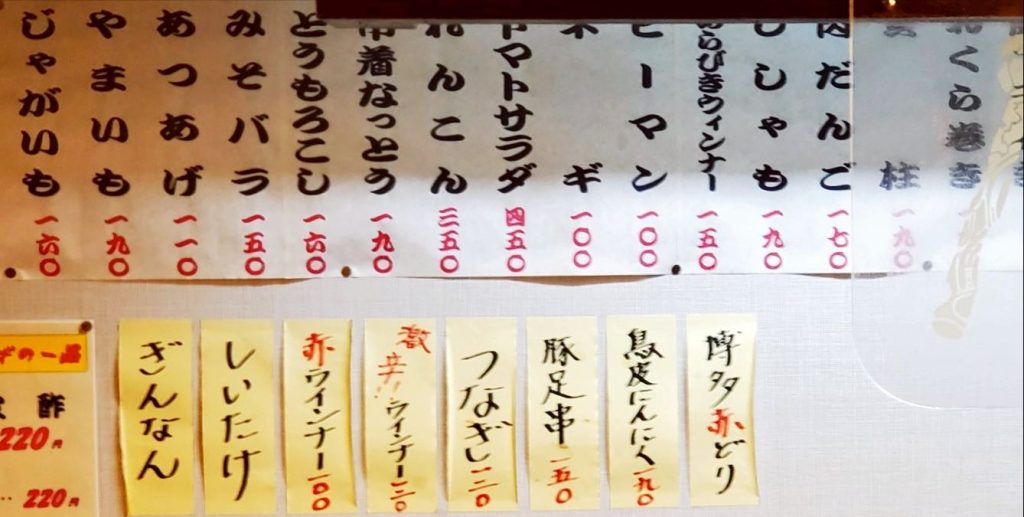 れくら巻き
貝柱 一九〇
肉だんご 一七〇
ししゃも 一九〇
あらびきウィンナー 一五〇
ピーマン 一〇〇
ネギ 一〇〇
トマトサラダ 四五〇
れんこん 三五〇
巾着なっとう 一九〇
とうもろこし 一六〇
みそバラ 一五〇
あつあげ 一一〇
やまいも 一九〇
じゃがいも 一六〇
博多赤どり
鳥皮にんにく 一九〇
豚足串 一五〇
つなぎ 一二〇
激辛!!ウインナー 一二〇
赤ウインナー 一〇〇
しいたけ
ぎんなん
の一品
酢
220円
220円